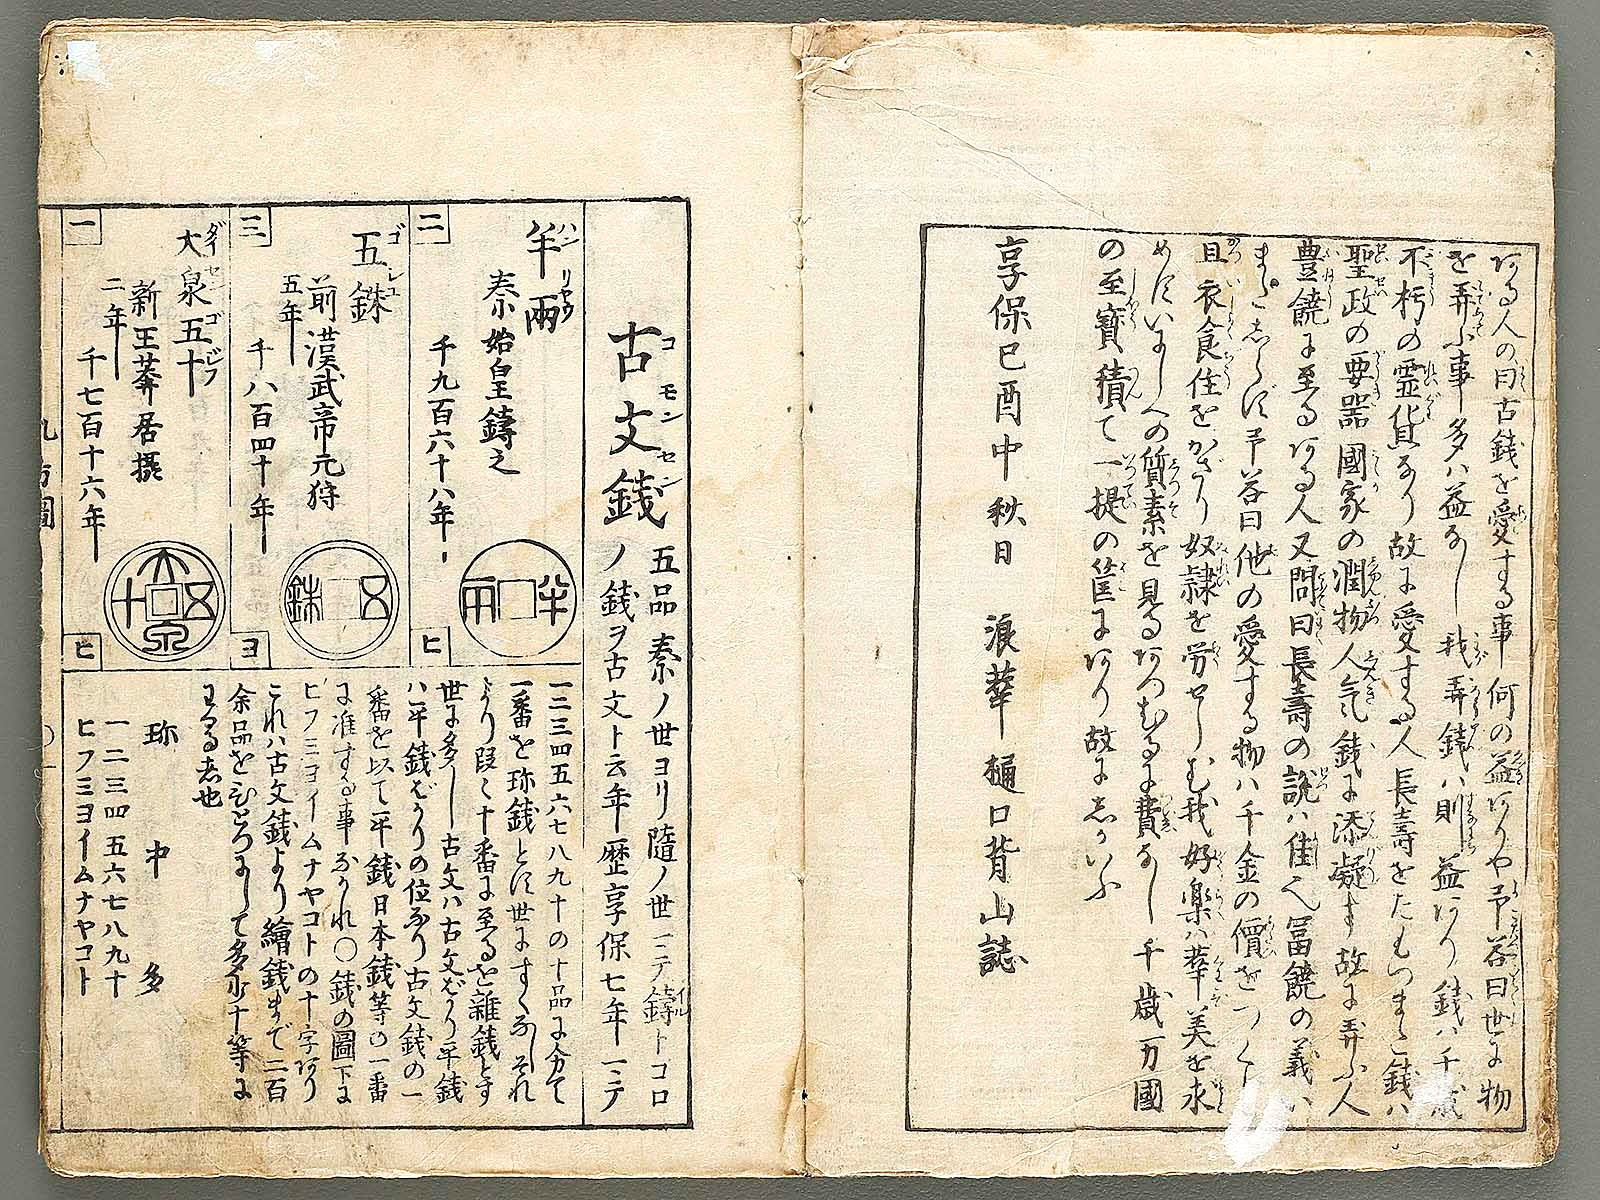 ある人の曰古銭を愛する事何の益ありや予答曰世に物
を弄ぶ事多ハ益なし我弄銭ハ則益あり銭ハ千歳
不朽の霊貨なり故に愛する人長壽をたもつまた銭ハ
聖政の要器國家の潤物人気銭に添凝す故に弄ぶ人
豊饒に至るある人又問曰長壽の説ハ佳也冨饒の義ハ
まだしらず予答曰他の愛する物ハ千金の價をつくし
且衣食住をかざり奴隷を労せしむ我好樂ハ華美を求
めずいにしへの質素を見るあつむるに費なし千歳万國
の至寶積て一提の筐にあり故にしかいふ
享保己酉中秋日 浪華樋口背山誌
古文銭 五品秦ノ世ヨリ隨ノ世ニテ鋳トコロ
コモンセン イル
ノ銭ヲ古文ト云年歴享保七年ニテ
二
半兩
ハンリヤウ
秦始皇鑄之
千九百六十八年
半兩
ヒ
三
五銖
ゴシユ
前漢武帝元狩
五年
千八百四十年
五銖
ヨ
一
大泉五十
ダイセンゴジフ
新王莽居攝
二年
千七百十六年
大泉五十
ヒ
一二三四五六七八九十の十品に分て
一番を珎銭とす世にすくなしそれ
より段〻十番に至るを雜銭とす
世に多し古文ハ古文ばかり平銭
ハ平銭ばかりの位なり古文銭の一
番を以て平銭日本銭等の一番
に准する事なかれ〇銭の圖下に
ヒフミヨイムナヤコトの十字あり
これハ古文銭より繪銭まで二百
余品をひとつにして多少十等に
わる志也
珎 中 多
一二三四五六七八九十
ヒフミヨイムナヤコト